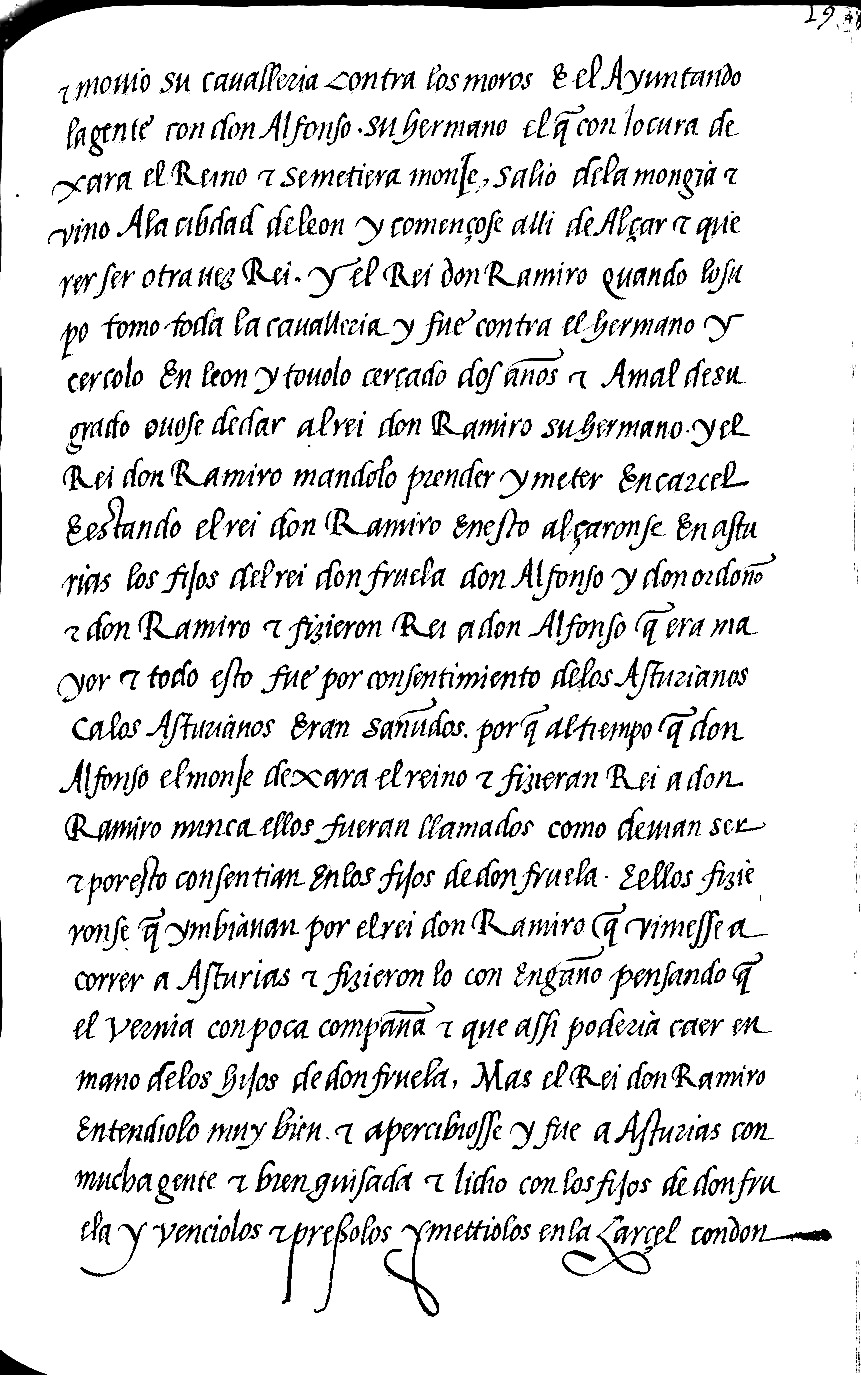 29
⁊ mouio su caualleria contra los moros E el Ayuntando
la gente con don Alfonso · su hermano el q̃ con locura de
xara el Reino ⁊ se metiera monje, salio de la mongia ⁊
vino A la cibdad de leon y començose alli de Alçar ⁊ que
rer ser otra uez Rei. Y el Rei don Ramiro quando lo su
po tomo toda la caualleria y fue contra el hermano y
cercolo En leon y touolo cercado dos años ⁊ A mal de su
grado ouose de dar al rei don Ramiro su hermano · y el
Rei don Ramiro mandolo prender y meter En carcel
E estando el rei don Ramiro En esto alçaronse En astu
rias los fijos del rei don fruela don Alfonso y don ordoño
⁊ don Ramiro ⁊ fizieron Rei a don Alfonso q̃ era ma
yor ⁊ todo esto fue por consentimiento de los Asturianos
Ca los Asturianos Eran sañudos. por q̃ al tiempo q̃ don
Alfonso el monje dexara el reino ⁊ fizieran Rei a don
Ramiro nunca ellos fueran llamados como deuian ser
⁊ por esto consentian En los fijos de don fruela · E ellos fizie
ronse q̃ ymbiauan por el rei don Ramiro q̃ viniesse a
correr a Asturias ⁊ fizieron lo con Engaño pensando q̃
el vernia con poca compaña ⁊ que assi poderia caer en
mano de los hijos de don fruela, Mas el Rei don Ramiro
Entendiolo muy bien. ⁊ apercibiosse y fue a Asturias con
mucha gente ⁊ bien guisada ⁊ lidio con los fijos de don fru
ela y venciolos ⁊ presolos y mettiolos en la Carçel con don